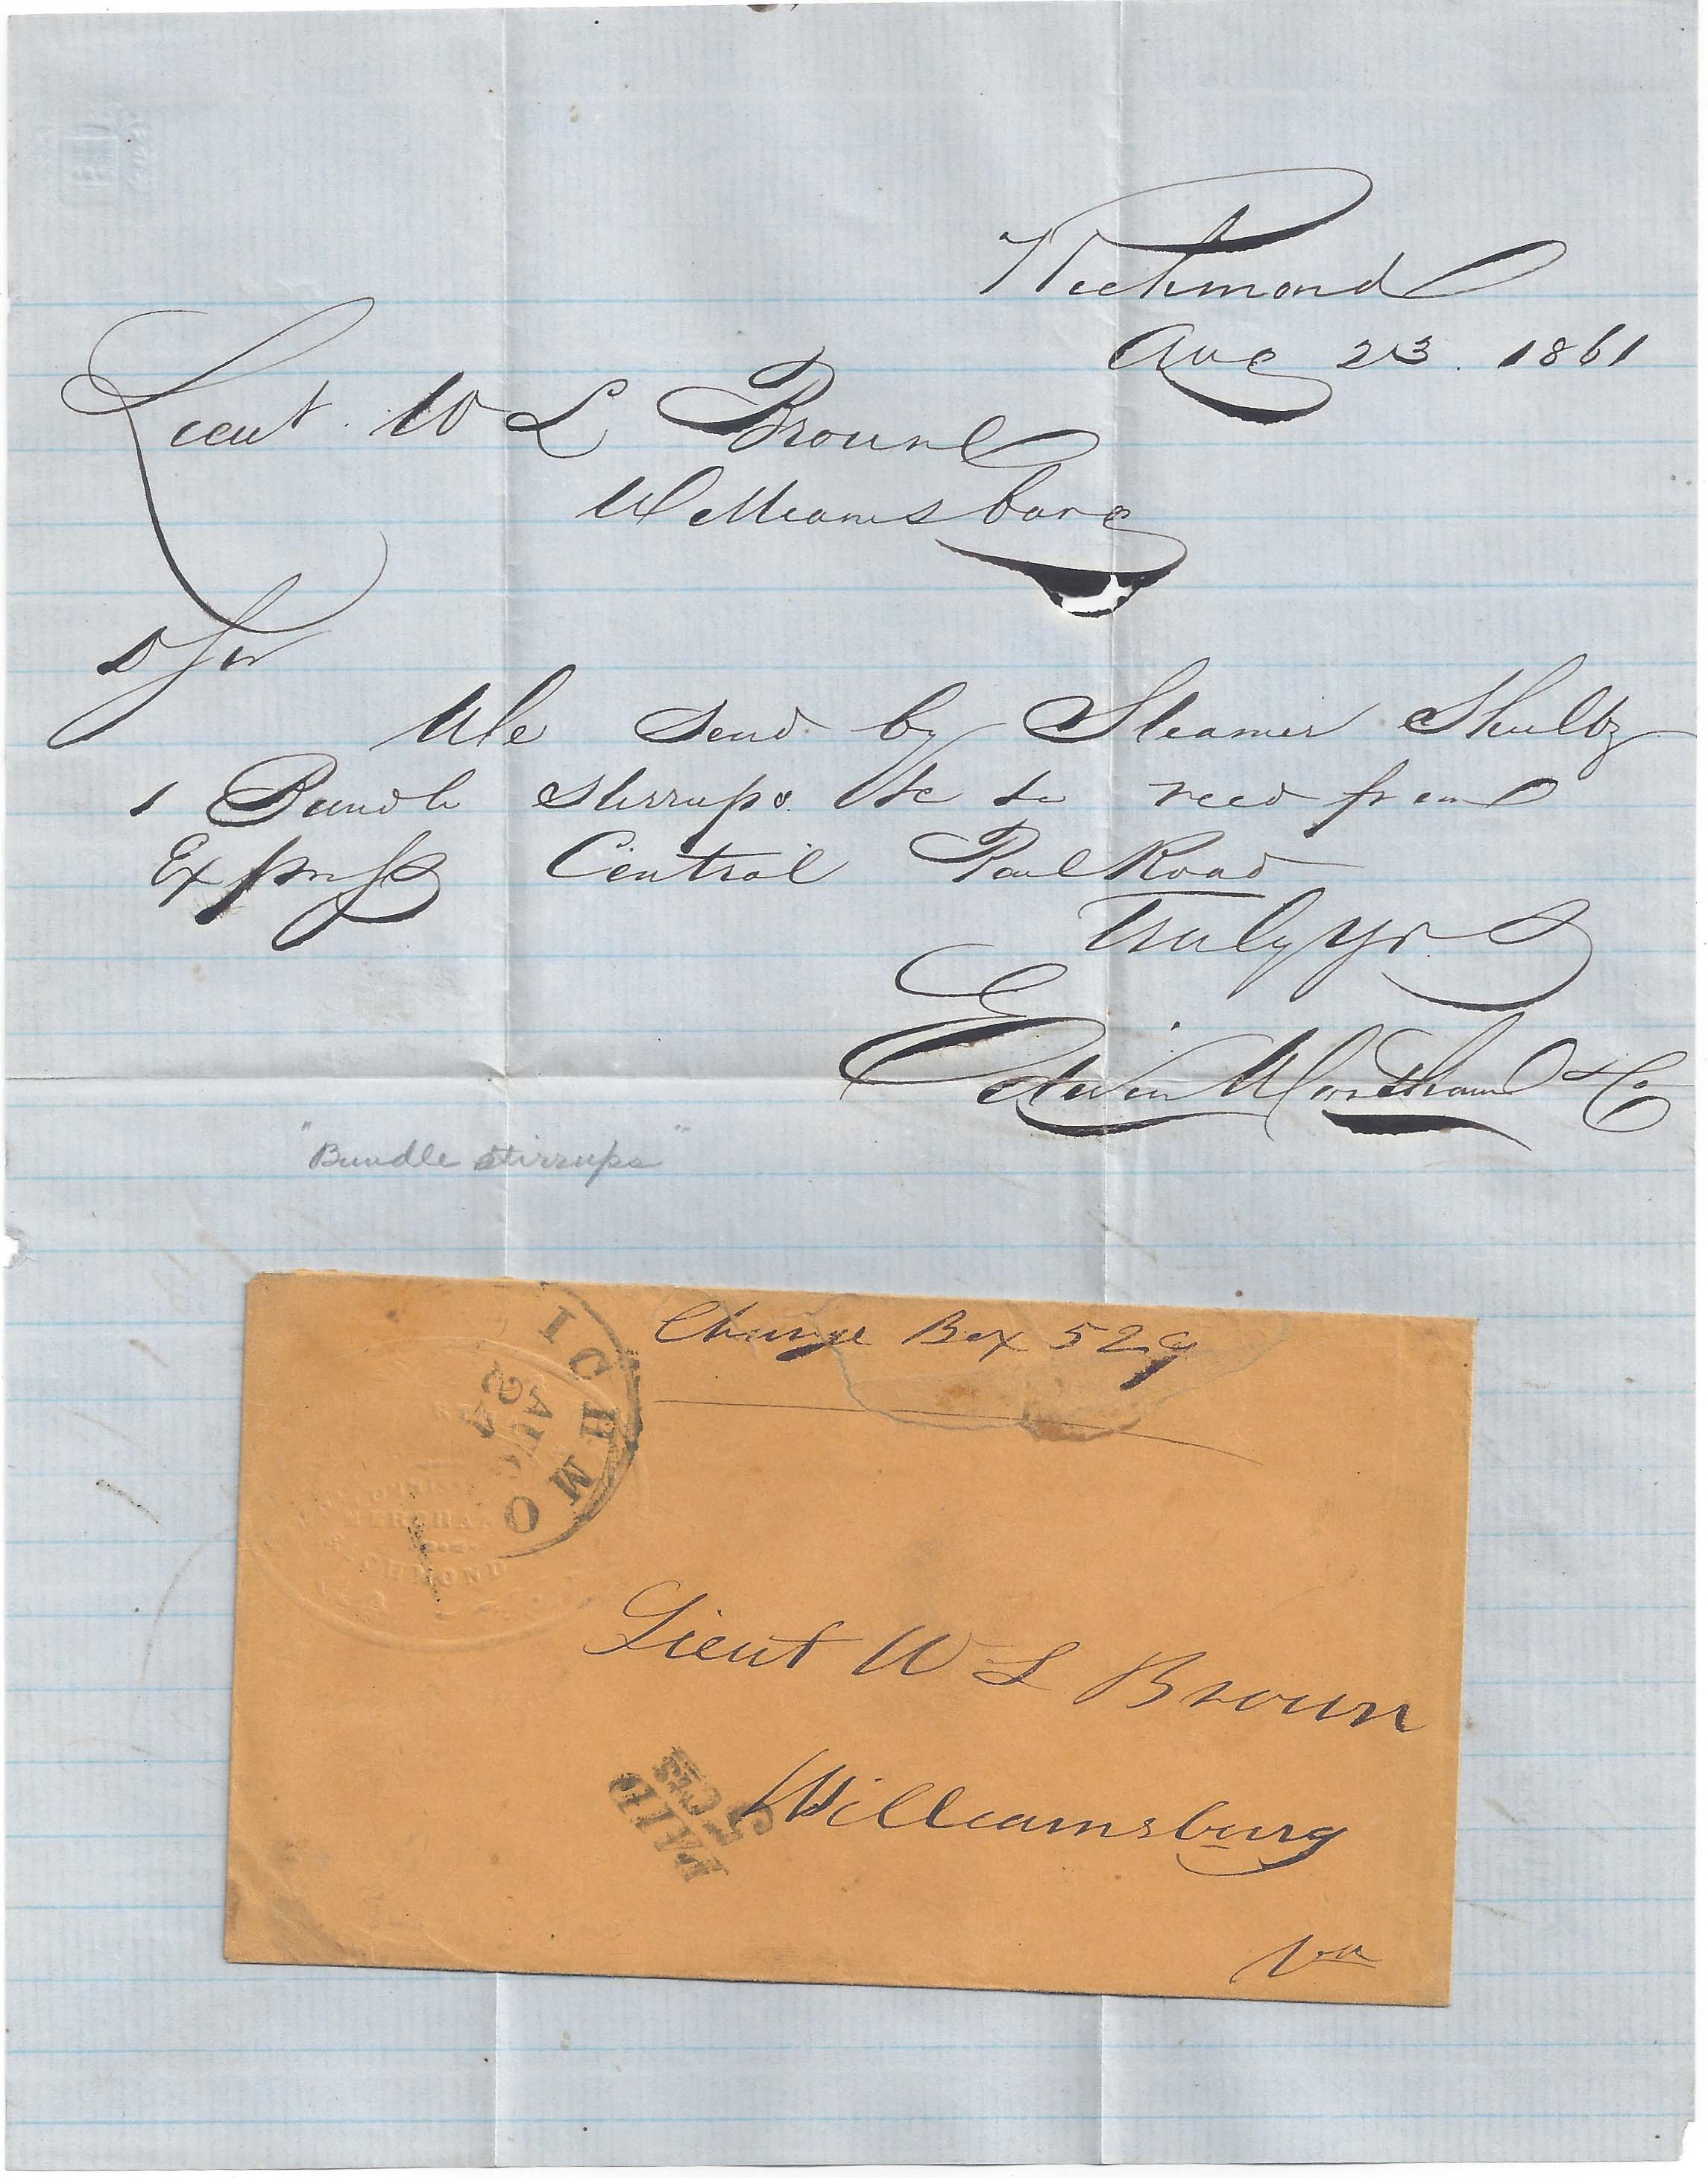 Richmond
Aug 23. 1861
Lieut. W L Broun
Williamsburg
D Sir
We send by Steamer Shultz
1 Bundle stirrups &c to recd from
Express Central Rail Road
Truly Yrs
Edwin Wortham & Co
"Bundle stirrups"
Charge Box 529
ICHMO
AUG
24
MERCHAN
RICHMOND
Lieut W L Broun
PAID
5 cts
Williamsburg
Va